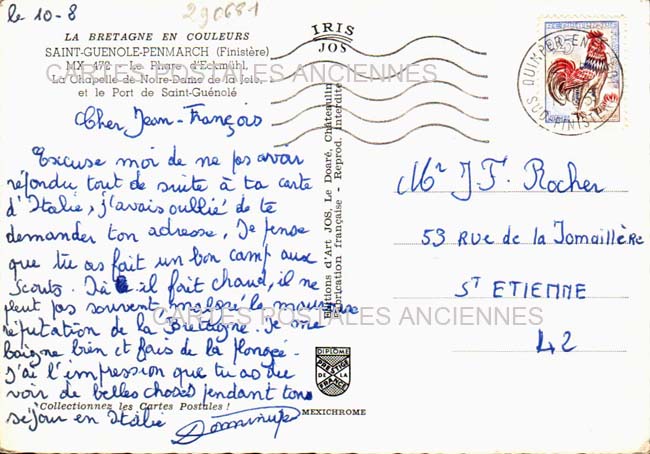 le 10-8
290681
LA BRETAGNE EN COULEURS
SAINT-GUENOLE-PENMARCH (Finistère)
MX 472 - Le Phare d'Eckmühl,
La Chapelle de Notre-Dame de la Joie,
et le Port de Saint-Guénolé
IRIS
JOS
Cher Jean-François
Excuse moi de ne pas avoir
répondu tout de suite à ta carte
d'Italie, j'avais oublié de te
demander ton adresse. Je pense
que tu as fait un bon camp aux
scouts. Ici il fait chaud, il ne
pleut pas souvent malgré la mauvaise
réputation de la Bretagne. Je me
baigne bien et fais de la plongée.
J'ai l'impression que tu as du
voir de belles choses pendant ton
séjour en Italie
Dominique
Collectionnez les Cartes Postales !
Editions d'Art JOS, Le Doaré, Châteaulin
Fabrication française - Reprod. interdite
DIPLOME
PRESTIGE
DE LA
FRANCE
MEXICHROME
QUIMPER
SUD-FINISTERE
Mr J.F. Rocher
53 RUE de la Jomaillère
ST ETIENNE
42
CARTES POSTALES ANCIENNES
CARTES POSTALES ANCIENNES